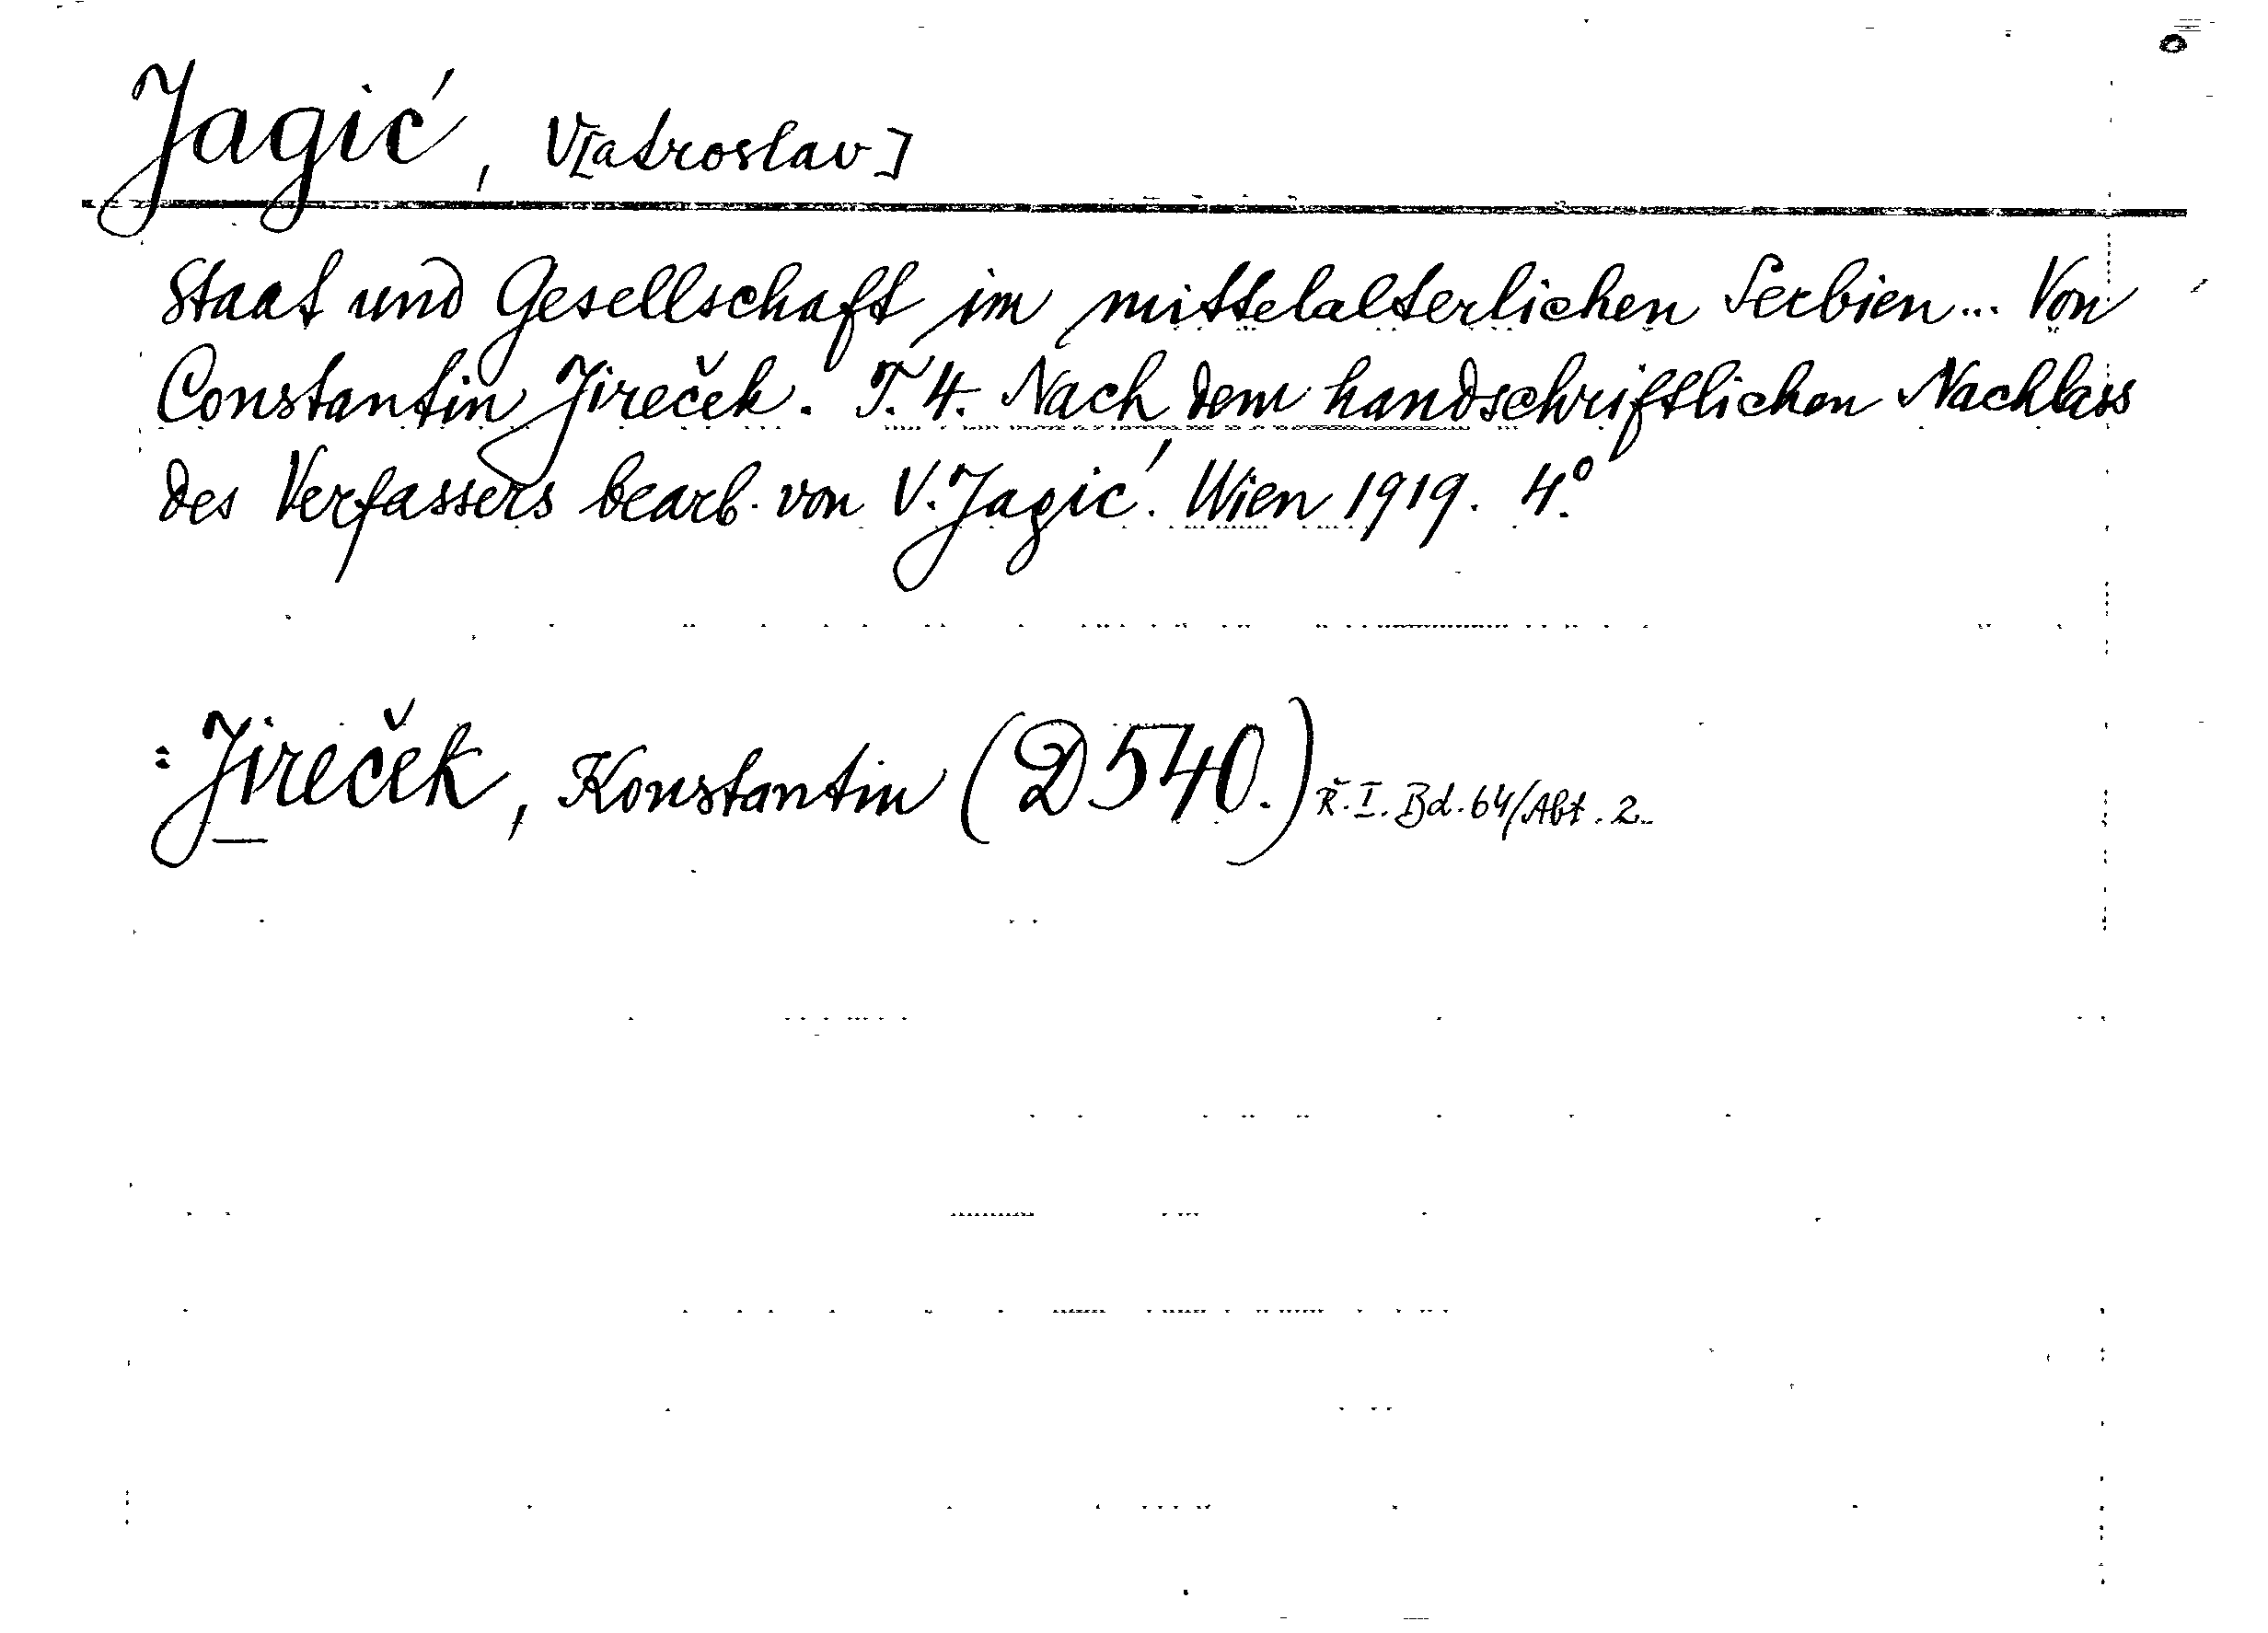 Jagić, V[atroslav]
Staat und Gesellschaft im mittelalterlichen Serbien... Von
Constantin Jireček. T. 4. Nach dem handschriftlichen Nachlass
des Verfassers bearb. von V. Jagić. Wien 1919. 4°.
: Jireček, Konstantin (D 540.) R. I. Bd. 64/Abt. 2.